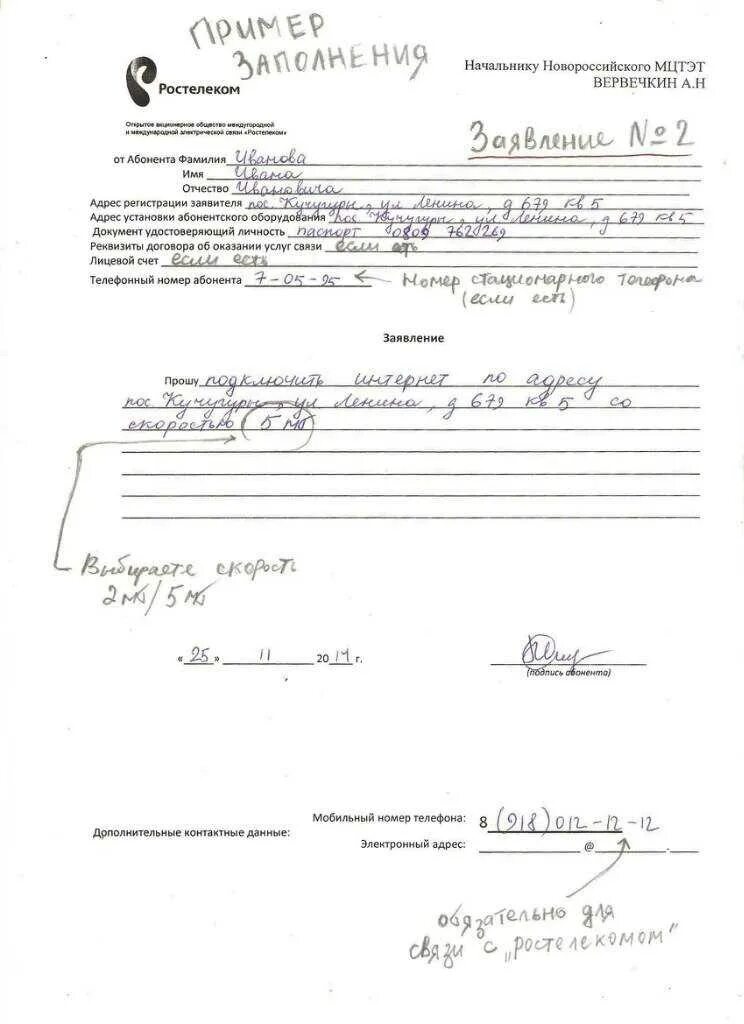 ПРИМЕР
ЗАПОЛНЕНИЯ
Начальнику Новороссийского МЦТЭТ
ВЕРВЕЧКИН А.Н
Ростелеком
Открытое акционерное общество междугородной
и международной электрической связи «Ростелеком»
Заявление №2
от Абонента Фамилия Иванова
Имя Ивана
Отчество Ивановича
Адрес регистрации заявителя пос. Кучугуры, ул Ленина, д 679 кв 5
Адрес установки абонентского оборудования пос. Кучугуры, ул Ленина, д 679 кв 5
Документ удостоверяющий личность паспорт 0809 762 269
Реквизиты договора об оказании услуг связи если есть
Лицевой счет если есть
Телефонный номер абонента 7-05-95 ← Номер стационарного телефона
(если есть)
Заявление
Прошу подключить интернет по адресу
пос. Кучугуры, ул Ленина, д 679 кв 5 со
скоростью 5 мб
Выбираете скорость
2 мб/5 мб
«25» 11 2014 г.
(подпись абонента)
Мобильный номер телефона: 8 (918) 012-12-12
Дополнительные контактные данные:
Электронный адрес: @ .
обязательно для
связи с „Ростелекомом"